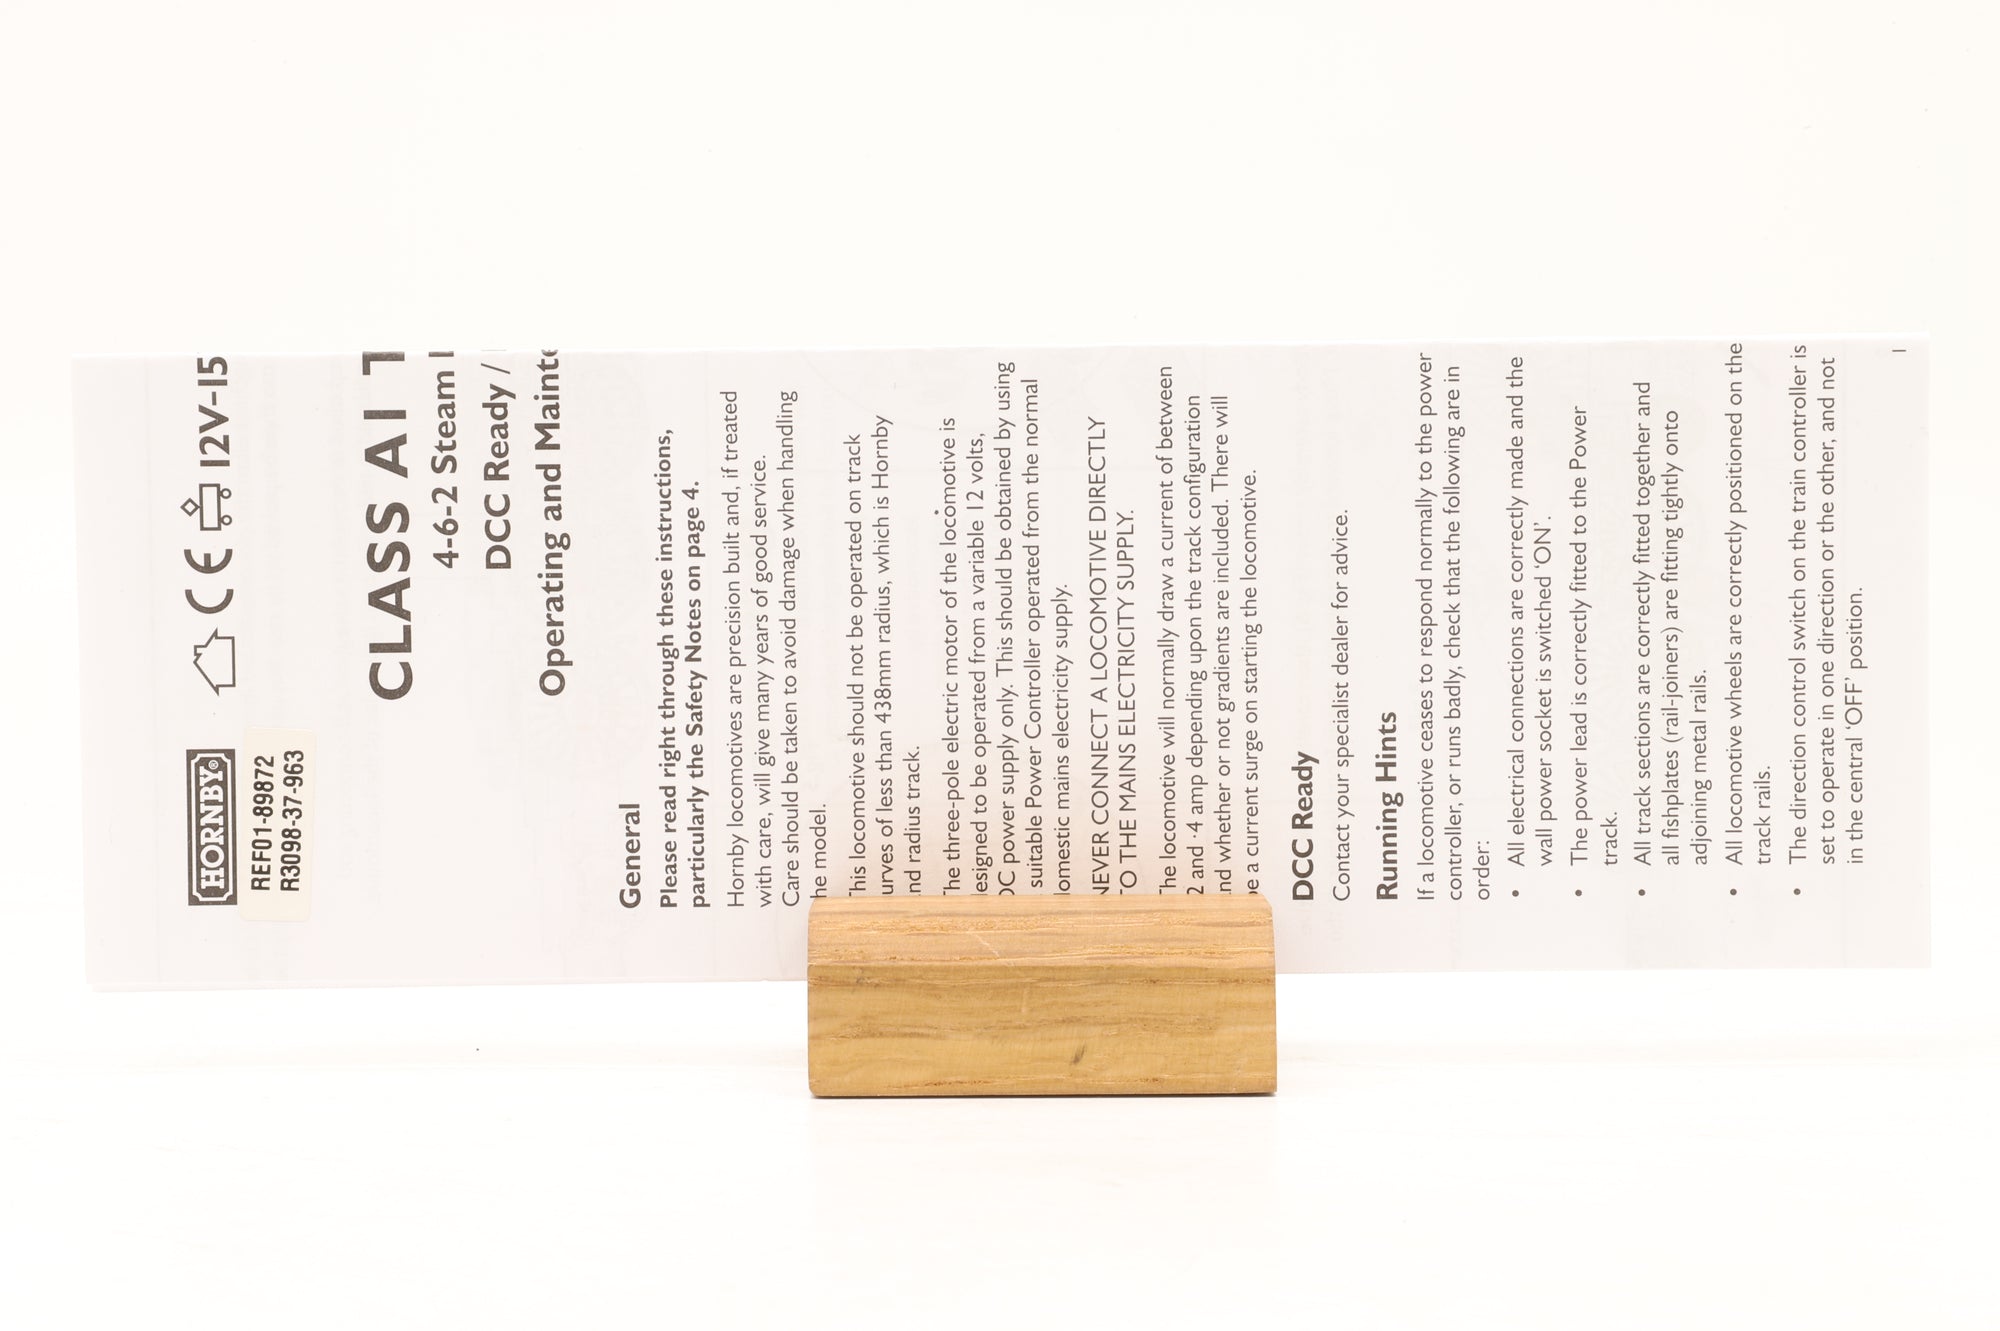 HORNBY®
CE 12V-15
REF01-89872
R3098-37-963
CLASS A1
4-6-2 Steam
DCC Ready /
Operating and
General
Please read right through these instructions,
particularly the Safety Notes on page 4.
Hornby locomotives are precision built and, if treated
with care, will give many years of good service.
Care should be taken to avoid damage when handling
he model.
his locomotive should not be operated on track
urves of less than 438mm radius, which is Hornby
nd radius track.
he three-pole electric motor of the locomotive is
esigned to be operated from a variable 12 volts,
DC power supply only. This should be obtained by using
suitable Power Controller operated from the normal
omestic mains electricity supply.
NEVER CONNECT A LOCOMOTIVE DIRECTLY
TO THE MAINS ELECTRICITY SUPPLY.
he locomotive will normally draw a current of between
2 and ·4 amp depending upon the track configuration
nd whether or not gradients are included. There will
be a current surge on starting the locomotive.
DCC Ready
Contact your specialist dealer for advice.
Running Hints
If a locomotive ceases to respond normally to the power
controller, or runs badly, check that the following are in
order:
• All electrical connections are correctly made and the
wall power socket is switched ‘ON’.
• The power lead is correctly fitted to the Power
track.
• All track sections are correctly fitted together and
all fishplates (rail-joiners) are fitting tightly onto
adjoining metal rails.
• All locomotive wheels are correctly positioned on the
track rails.
• The direction control switch on the train controller is
set to operate in one direction or the other, and not
in the central ‘OFF’ position.
1